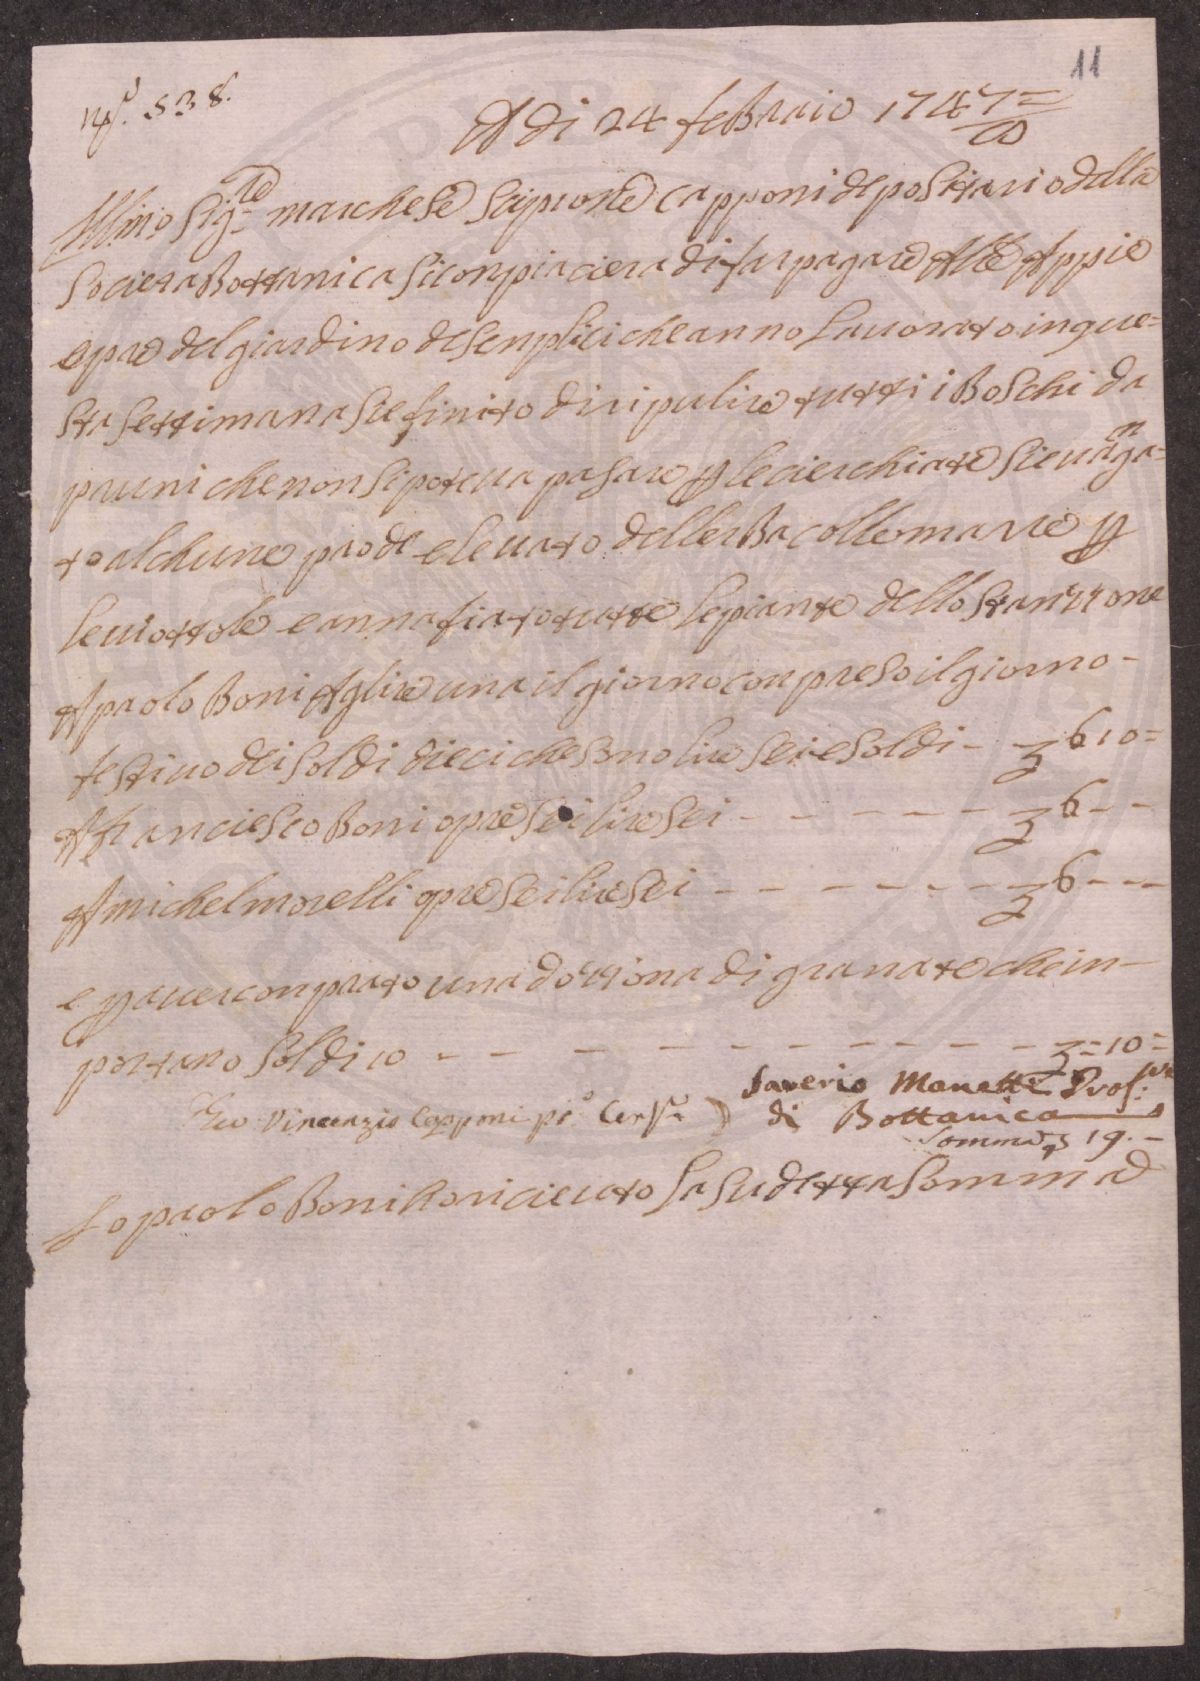 11
N.º 538.
A di 24 febraio 1747=
Illmo Sig:re marchese Scipione Capponi depositario della
Societa Bottanica si conpiaciera di far pagare Alle Appie
opre del giardino de senplici che anno Lauorato in que=
sta settimana si e finito di ripulire tutti i Boschi da
pruni che non si poteua pasare p le cierchiate si e uanga=
to alchune prode e leuato dellerba colle marre p
le uiottole e annafiato tutte le piante dello stanzzone
A paolo Boni A lire una il giorno conpreso il giorno -
festiuo dei soldi dieci che sono lire sei e soldi - £ 6 10=
A franciesco Boni opre sei lire sei - - - - - - £ 6 - -
A michel morelli opre sei lire sei - - - - - - £ 6 - - -
e p auer conprato una dozzina di granate che in-
portano soldi 10 - - - - - - - - - - £ = 10 =
Saverio Manetti Prof:re
di Bottanica
Io Vincenzio Capponi
Somma £ 19. -
Io paolo Boni o riceuto la sudetta somma